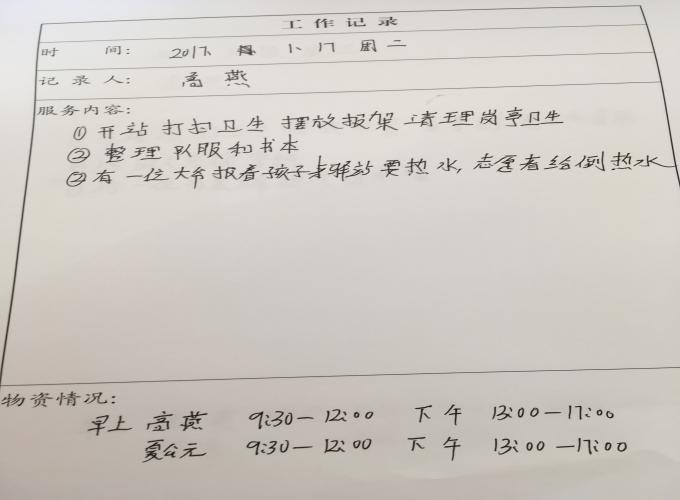 工作记录
时 间: 2017. 1.17 周二
记录人: 高燕
服务内容:
① 开站 打扫卫生 摆放报架 清理岗亭卫生
② 整理队服和书本
② 有一位大爷报着孩子来驿站要热水, 志愿者给倒热水
物资情况:
早上 高燕 9:30—12:00 下午 13:00—17:00
夏公元 9:30—12:00 下午 13:00—17:00